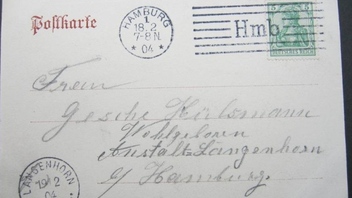 Postkarte
HAMBURG
1
18.2
7-8 N.
* 04 *
Hmb.
DEUTSCHES REICH
Frau
Gesche
Wohlgeboren
Anstalt Langenhorn
b/ Hamburg.
LANGENHORN
19 2
04